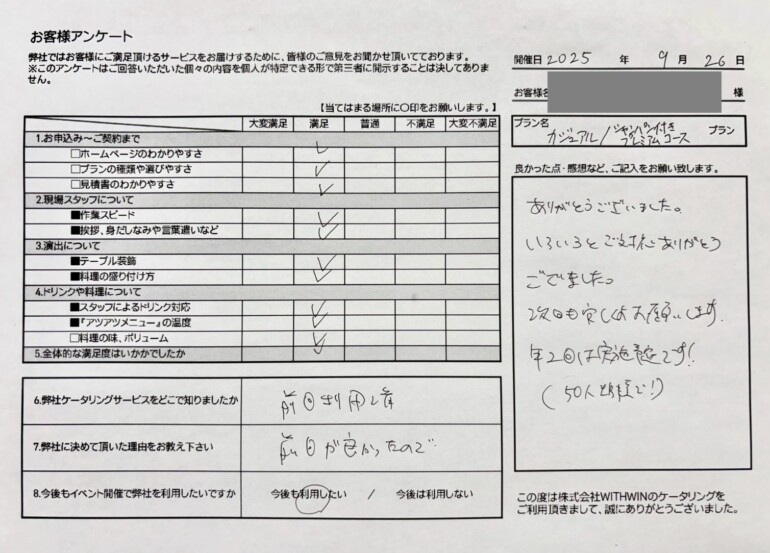 お客様アンケート
弊社ではお客様にご満足頂けるサービスをお届けするために、皆様のご意見をお聞かせ頂いております。
※このアンケートはご回答いただいた個々の内容を個人が特定できる形で第三者に開示することは決してありま
せん。
【当てはまる場所に〇印をお願いします。】
大変満足 満足 普通 不満足 大変不満足
1.お申込み～ご契約まで
□ホームページのわかりやすさ
□プランの種類や選びやすさ
□見積書のわかりやすさ
2.現場スタッフについて
■作業スピード
■挨拶、身だしなみや言葉遣いなど
3.演出について
■テーブル装飾
■料理の盛り付け方
4.ドリンクや料理について
■スタッフによるドリンク対応
■『アツアツメニュー』の温度
□料理の味、ボリューム
5.全体的な満足度はいかがでしたか
6.弊社ケータリングサービスをどこで知りましたか
前回利用し
7.弊社に決めて頂いた理由をお教え下さい
前回が良かったので
8.今後もイベント開催で弊社を利用したいですか
今後も利用したい / 今後は利用しない
開催日 2025 年 9 月 26 日
お客様名
様
プラン名
カジュアル/シャンパン付き
プレミアムコース
プラン
良かった点・感想など、ご記入をお願い致します。
ありがとうございました。
いろいろとご対応ありがとう
ございました。
次回も宜しくお願いします。
年2回は実施予定です!
(50人規模で!!)
この度は株式会社WITHWINのケータリングを
ご利用頂きまして、誠にありがとうございました。